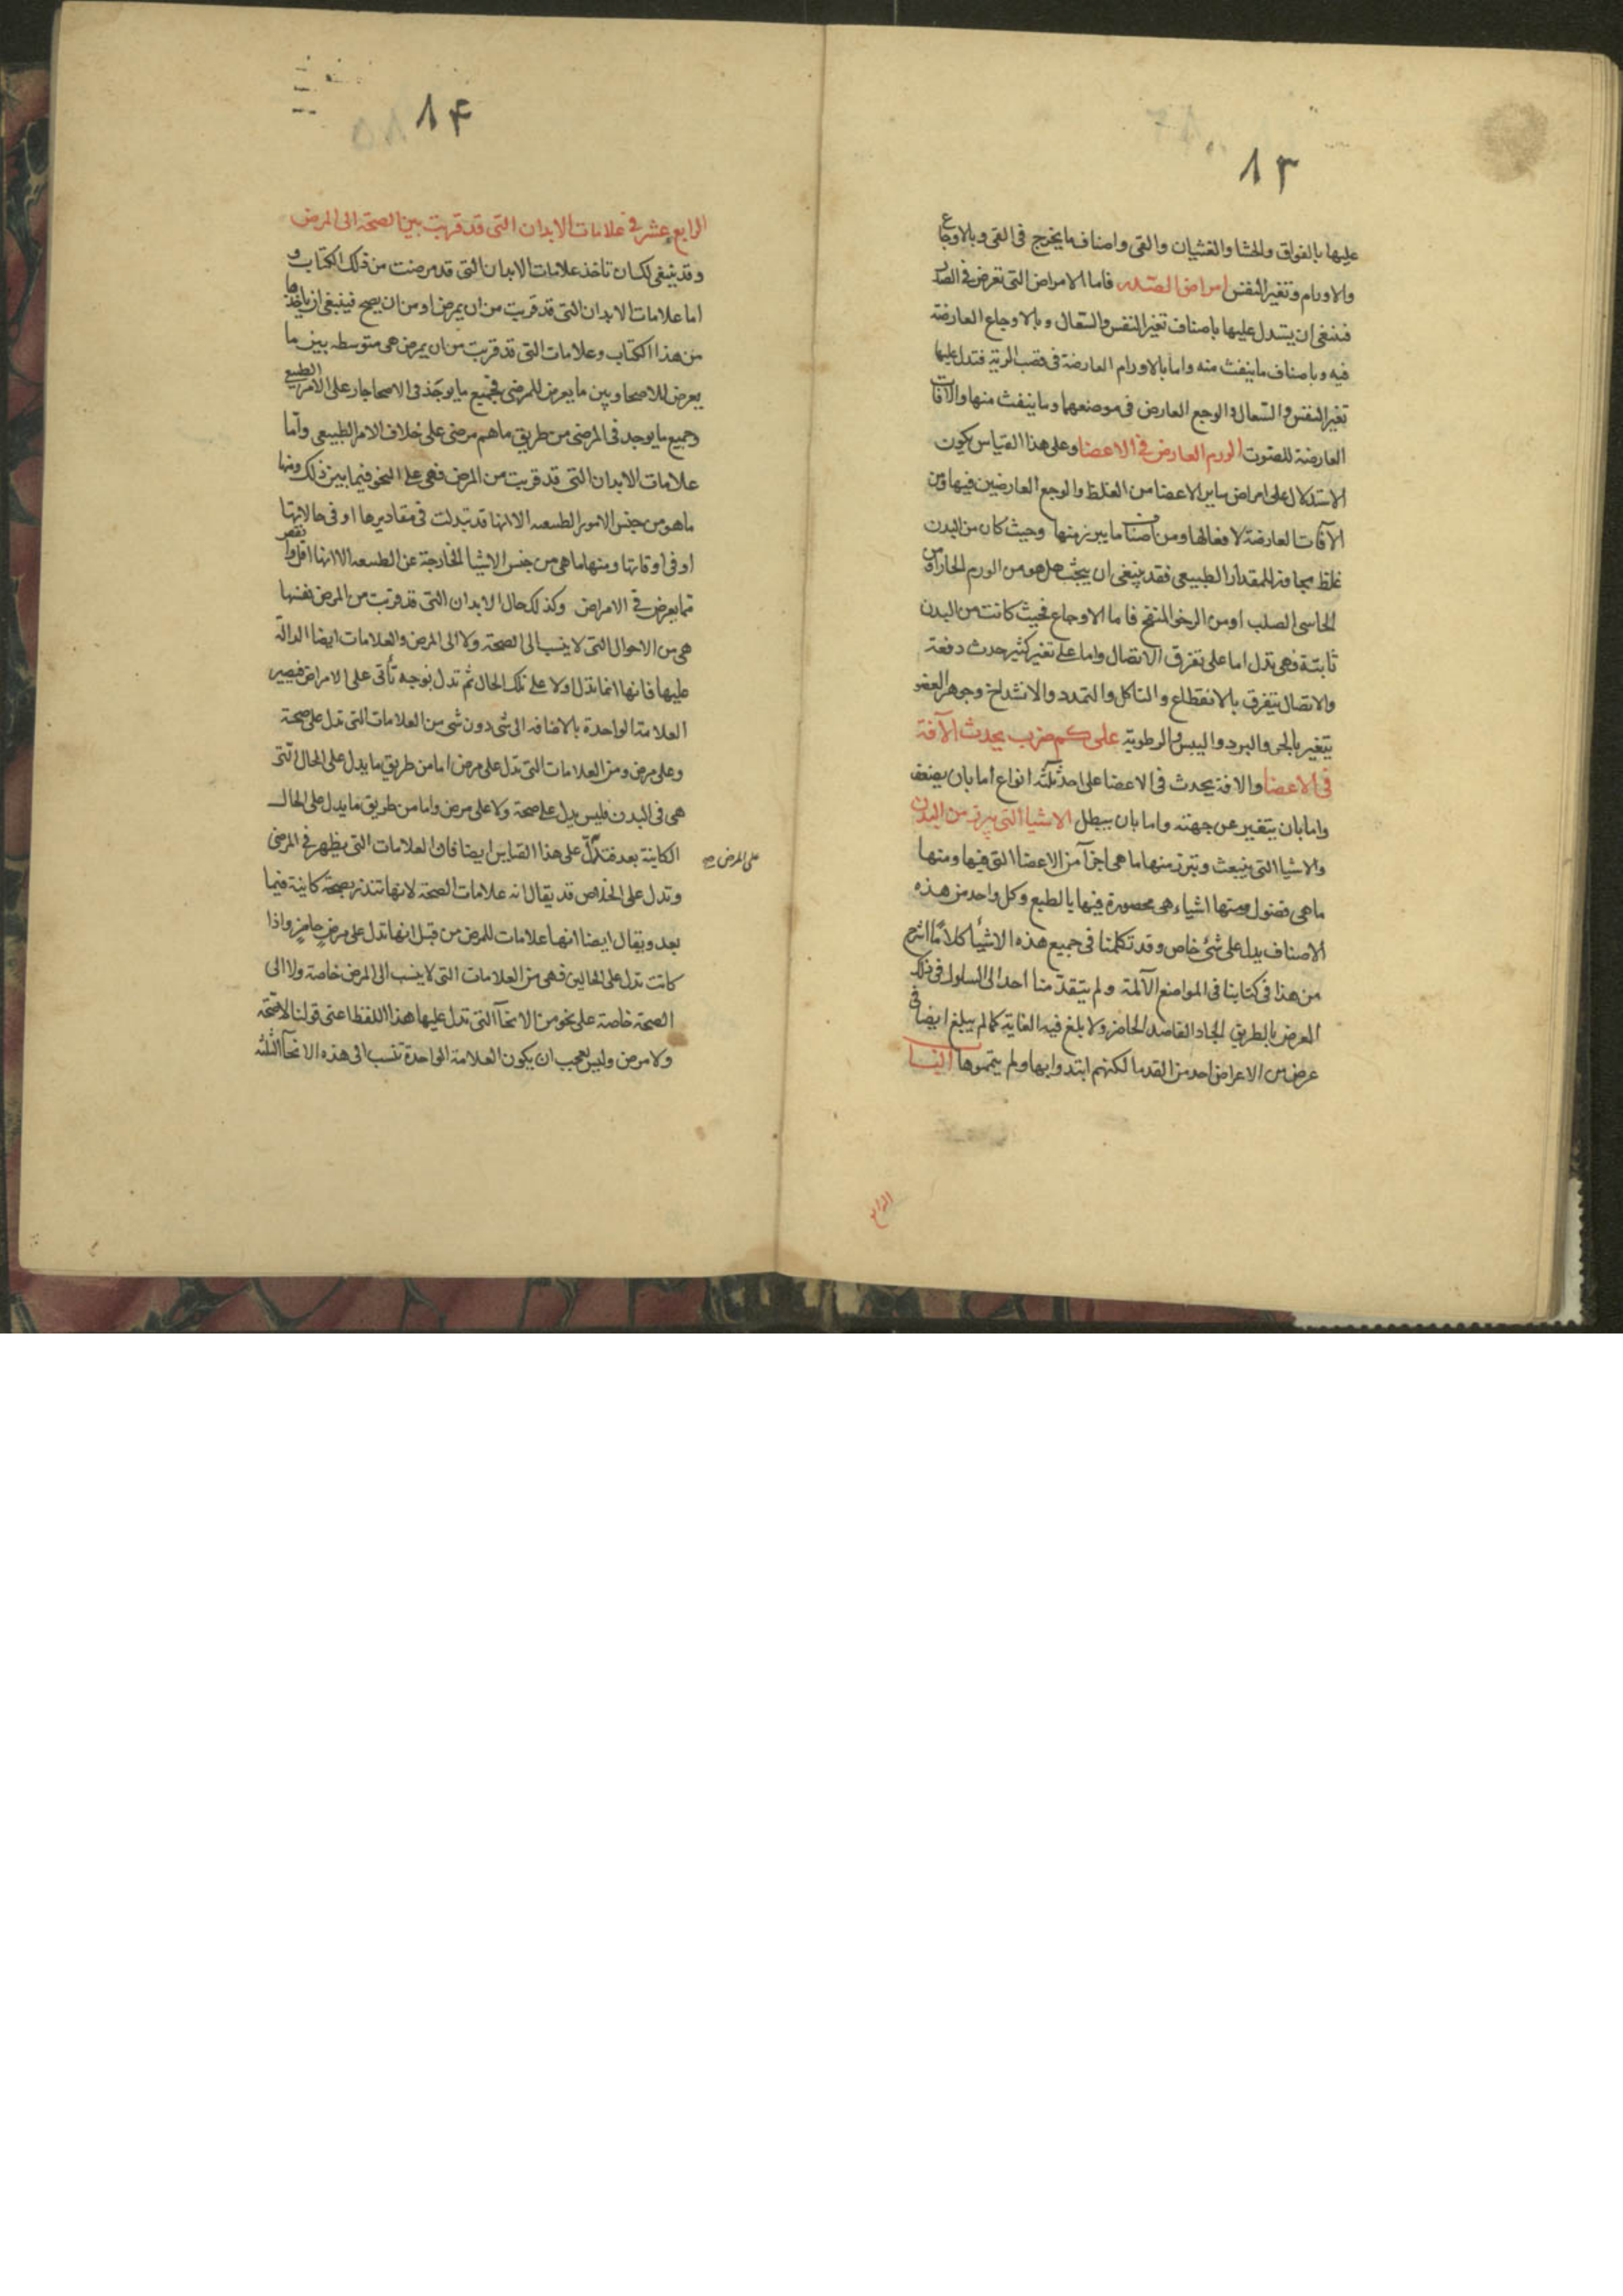 ١٣
عليها بالفواق والجشا والغثيان والقى واصناف ما يخرج فى القى وبالاوجاع
والاورام وتغير النفس امراض الصدر فاما الامراض التى تعرض فى الصدر
فينبغى ان يستدل عليها باصناف تغير النفس والسعال وبالاوجاع العارضة
فيه وباصناف ما ينفث منه واما بالاورام العارضة فى قصب الرية فتدل عليها
تغير النفس والسعال والوجع العارض فى موضعهما وما ينفث منها والآفات
العارضة للصوت الورم العارض فى الاعضا وعلى هذا القياس يكون
الاستدلال على امراض ساير الاعضا من الغلظ والوجع العارضين فيها ومن
الآفات العارضة لافعالها ومن اصناف ما يبرز منها وحيث كان من البدن
غلظ مجاوز للمقدار الطبيعى فقد ينبغى ان يبحث هل هو من الورم الحار او من
الجاسى الصلب او من الرخو المنتفخ فاما الاوجاع فحيث كانت من البدن
ثابتة فهى تدل اما على تفرق الاتصال واما على تغير كثير حدث دفعة
والاتصال يتفرق بالانقطاع والتاكل والتمدد والانشداخ وجوهر العضو
يتغير بالحر والبرد واليبس والرطوبة على كم ضرب يحدث الآفة
فى الاعضا والافة يحدث فى الاعضا على احد ثلثه انواع اما بان يضعف
واما بان يتغير عن جهته واما بان يبطل الاشيا التى يبرز من البدن
والاشيا التى ينبعث وتبرز منها ما هى اجزآ من الاعضا التى فيها ومنها
ما هى فضول ومنها اشياء هى محصورة فيها بالطبع وكل واحد من هذه
الاصناف يدل على شئ خاص وقد تكلمنا فى جميع هذه الاشيا كلامًا اشرح
من هذا فى كتابنا فى المواضع الآلمة ولم يتقد منا احد الى السلوك فى ذلك
الغرض بالطريق الجاد القاصد الحاضر ولا بلغ فيه الغاية كما لم يبلغ ايضا فى
عرض من الاعراض احد من القدما لكنهم ابتدوا بها ولم يتمموها
الرابع
١٤
الرابع عشر فى علامات الابدان التى قد قربت بين الصحة الى المرض
وقد ينبغى لك ان تاخذ علامات الابدان التى قد مرضت من ذلك الكتاب و
اما علامات الابدان التى قد قربت من ان يمرض او من ان يصح فينبغى ان ياخذها
من هذا الكتاب وعلامات التى قد قربت من ان يمرض هى متوسطه بين ما
يعرض للاصحا وبين ما يعرض للمرضى فجميع ما يوجد فى الاصحا جار على الامر الطبيعى
وجميع ما يوجد فى المرضى من طريق ما هم مرضى على خلاف الامر الطبيعى واما
علامات الابدان التى قد قربت من المرض فهى على النحو فيما بين ذلك ومنها
ما هو من جنس الامور الطبيعه الا انها قد تبدلت فى مقاديرها او فى حالاتها
او فى اوقاتها ومنها ما هى من جنس الاشيا الخارجة عن الطبيعه الا انها اقل وانقص
مما يعرض فى الامراض وكذلك حال الابدان التى قد قربت من المرض نفسها
هى من الاحوال التى لا ينسب الى الصحة ولا الى المرض والعلامات ايضا الدالة
عليها فانها انما تدل اولا على تلك الحال ثم تدل بوجه تأتى على الامراض فيصير
العلامة الواحدة بالاضافه الى شى دون شى من العلامات التى تدل على صحة
وعلى مرض ومن العلامات التى تدل على مرض اما من طريق ما يدل على الحال التى
هى فى البدن فليس يدل على صحة ولا على مرض واما من طريق ما يدل على الحال
الكاينة بعد فتدل على هذا القياس ايضا فان العلامات التى يظهر فى المرضى
على المرض صح
وتدل على الخلاص قد يقال انه علامات الصحة لانها تنذر بصحة كاينة فيما
بعد ويقال ايضا انها علامات للمرض من قبل انها تدل على مرض حاضر واذا
كانت تدل على الحالين فهى من العلامات التى لا ينسب الى المرض خاصة ولا الى
الصحة خاصة على نحو من الانحآ التى تدل عليها هذا اللفظ اعنى قولنا لا صحة
ولا مرض وليس بعجب ان يكون العلامة الواحدة تنسب الى هذه الانحآ الثلثه